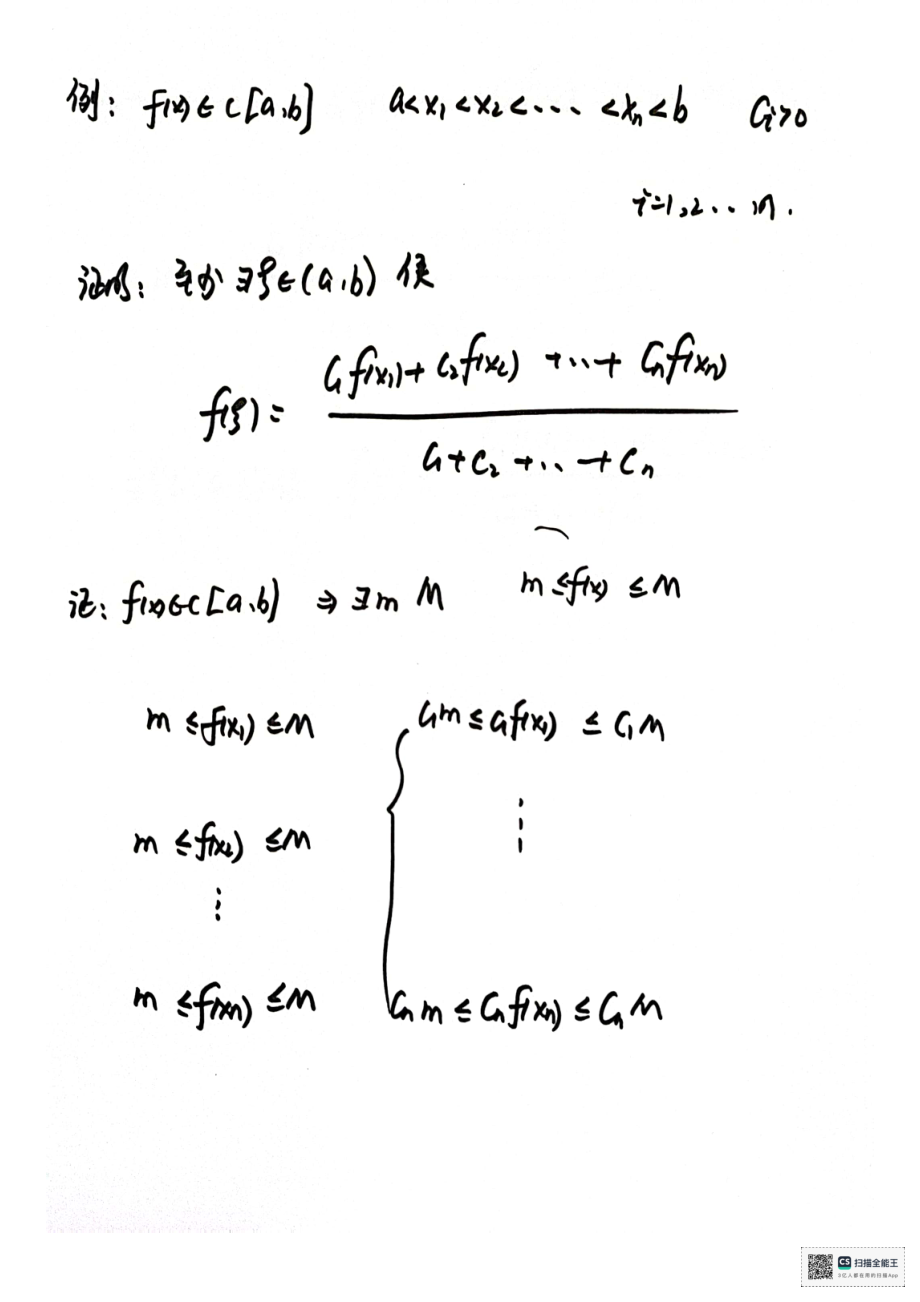 例: f(x)∈C[a,b] a<x₁<x₂<...<xₙ<b Cᵢ>0
i=1,2...n.
证明: 至少∃ξ∈(a,b) 使
f(ξ)= (C₁f(x₁)+C₂f(x₂)+...+Cₙf(xₙ))/(C₁+C₂+...+Cₙ)
证: f(x)∈C[a,b] ⇒ ∃m M m≤f(x)≤M
m≤f(x₁)≤M { C₁m≤C₁f(x₁)≤C₁M
m≤f(x₂)≤M ⋮
⋮
m≤f(xₙ)≤M Cₙm≤Cₙf(xₙ)≤CₙM
CS 扫描全能王
3亿人都在用的扫描App